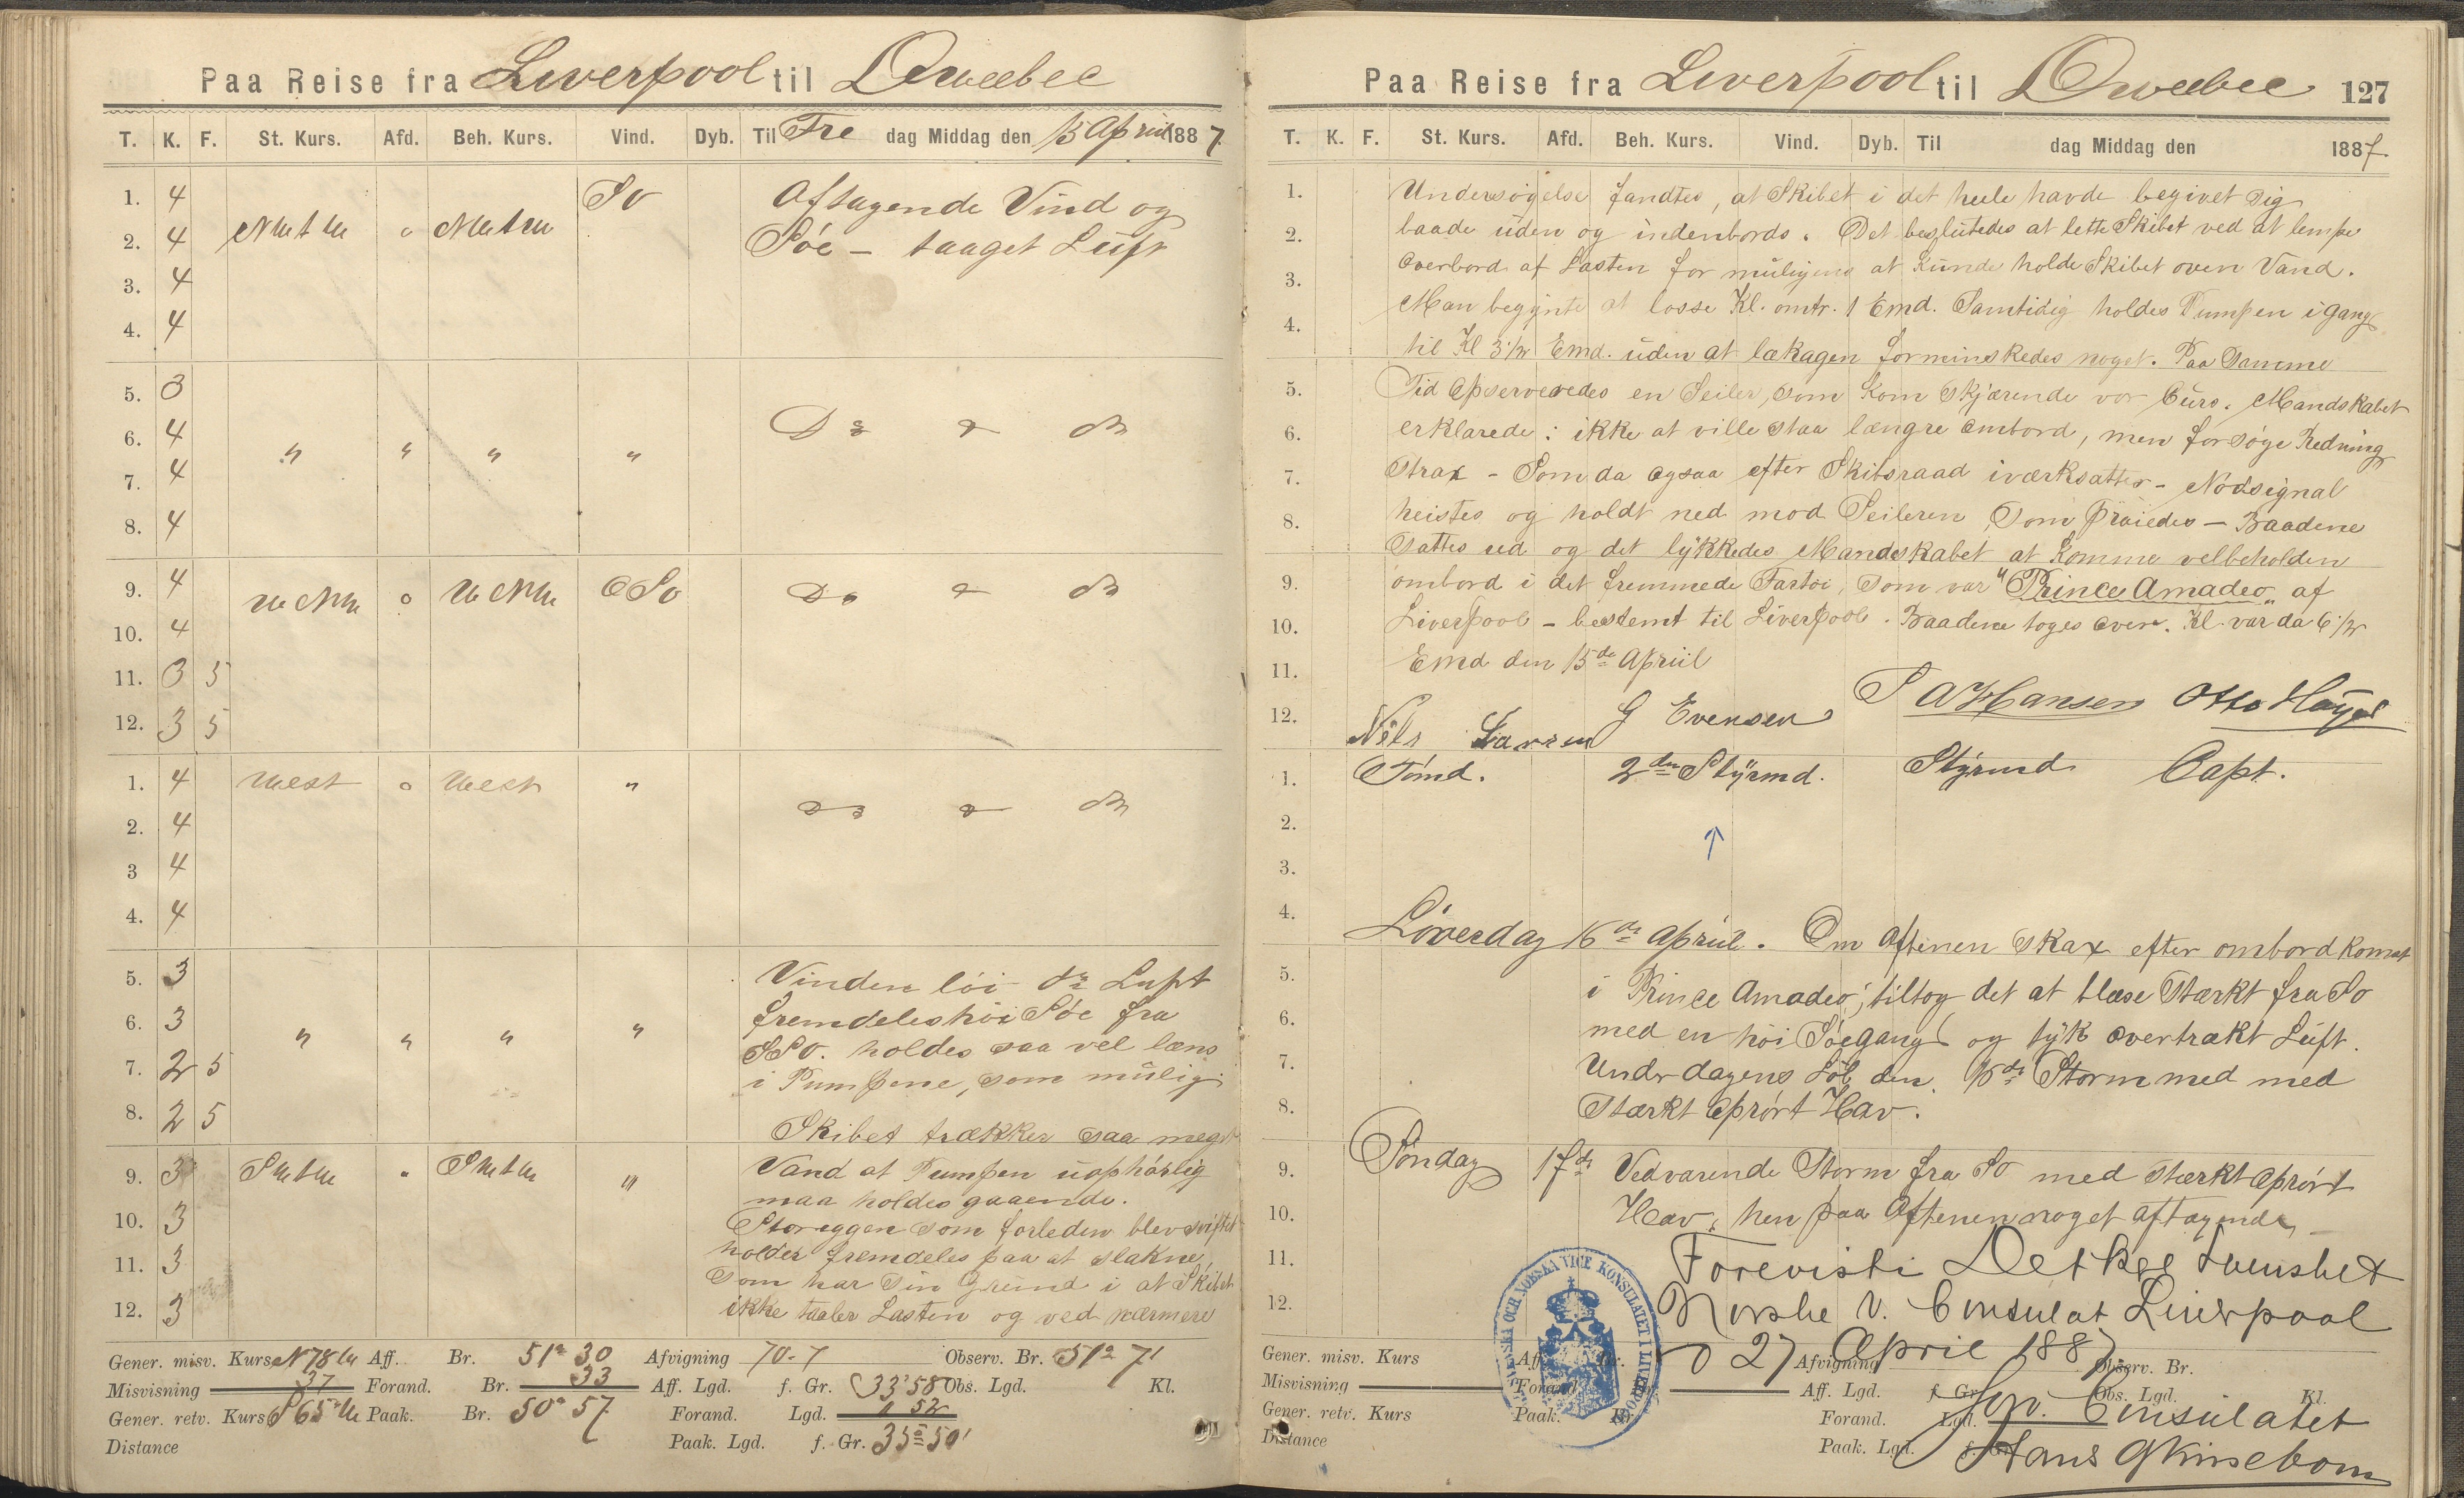 Paa Reise fra Liverpool til Qwebec
T. K. F. St. Kurs. Afd. Beh. Kurs. Vind. Dyb. Til Fre dag Middag den 15 April 1887
1. 4 So Aftagende Vind og
2. 4 Söe - taaget Luft
3. 4
4. 4
5. 3
6. 4 " " " "
7. 4
8. 4
9. 4 OSo
10. 4
11. 3 5
12. 3 5
1. 4 West o West "
2. 4
3 4
4. 4
5. 3 Vinden löi Luft
6. 3 " " " " fremdeles höi Söe fra
7. 2 5 SSO. holdes saa vel læns
i Pumpene, som mülig
8. 2 5
Skibet trækker saa meget
9. 3 " Vand at Pumpen üophörlig
maa holdes gaaende.
10. 3 som forleden blev sviftet
11. 3 holder fremdeles paa at slakne,
Som har Sin Gründ i at Skibet
12. 3 ikke taaler Lasten og ved nærmere
Gener. misv. Kurs N 78 W Aff. Br. 51° 30 Afvigning 70-7 Observ. Br. 51° 7'
Misvisning 37 Forand. Br. 33 Aff. Lgd. f. Gr. 33°58 Obs. Lgd. Kl.
Gener. retv. Kurs S 65 W Paak. Br. 50° 57 Forand. Lgd. 1 52
Distance Paak. Lgd. f. Gr. 35° 50'
Paa Reise fra Liverpool til Qwebec 127
T. K. F. St. Kurs. Afd. Beh. Kurs. Vind. Dyb. Til dag Middag den 1887.
1. Undersögelse fandtes, at Skibet i det heele havde begivet Sig
2. baade üden og indenbords. Det beslütedes at lette Skibet ved at lempe
3. Overbord af Lasten for müligens at Künde holde Skibet oven Vand.
4. Man begÿnte at losse Kl. omtr. 1 Emd. Samtidig holdes Pumpen i gang
til Kl 3 1/2 Emd. üden at lækagen formindskedes noget. Paa Samme
5. Tid Opserveredes en Seiler, Som Kom Skjærende vor Curs. Mandskabet
6. erklarede: ikke at ville staa længre ombord, men forsöge Redning
7. Strax - Som da ogsaa efter Skibsraad iværksattes - Nödsignal
8. heistes og holdt ned mod Seileren Som praiedes - Baadene
Sattes ud og det lÿkkedes Mandskabet at Komme velbeholden
9. ombord i det fremmede Fartöi, Som var "Prince Amadeo" af
10. Liverpool - bestemt til Liverpool. Baadene toges over. Kl. var da 6 1/2
11. Emd den 15de April
12. Nils Larsen G Evensen S A Hansen Otto
1. Tömd. 2den Stÿrmd. Stÿrmd Capt.
2.
3.
4. Löverdag 16de April. Om Aftenen Strax efter ombord Komst
5. i Prince Amadeo, tiltog det at blæse Stærkt fra So
6. med en höi Söegang og tÿk overtrakt Lüft.
7. Under dagens Löb den 16de Storm med med
8. Stærkt Oprört Hav.
9. Söndag 17de Vedvarende Storm fra SO med Stærkt Oprört
10. Hav, hen paa Aftenen noget aftagende
11. Forevist i Det Svenshet
12. Norshe V. Consulat Liverpool
d 27 April 1887
SVENSKA OCH NORSKA VICE KONSULATET I LIVERPOOL
Gener. misv. Kurs Aff. Br. Afvigning Observ. Br.
Misvisning Forand. Br. Aff. Lgd. f. Gr. Obs. Lgd. Kl.
Gener. retv. Kurs Paak. Br. Forand. Lgd. Consulatet
Distance Paak. Lgd. f. Gr. Hans